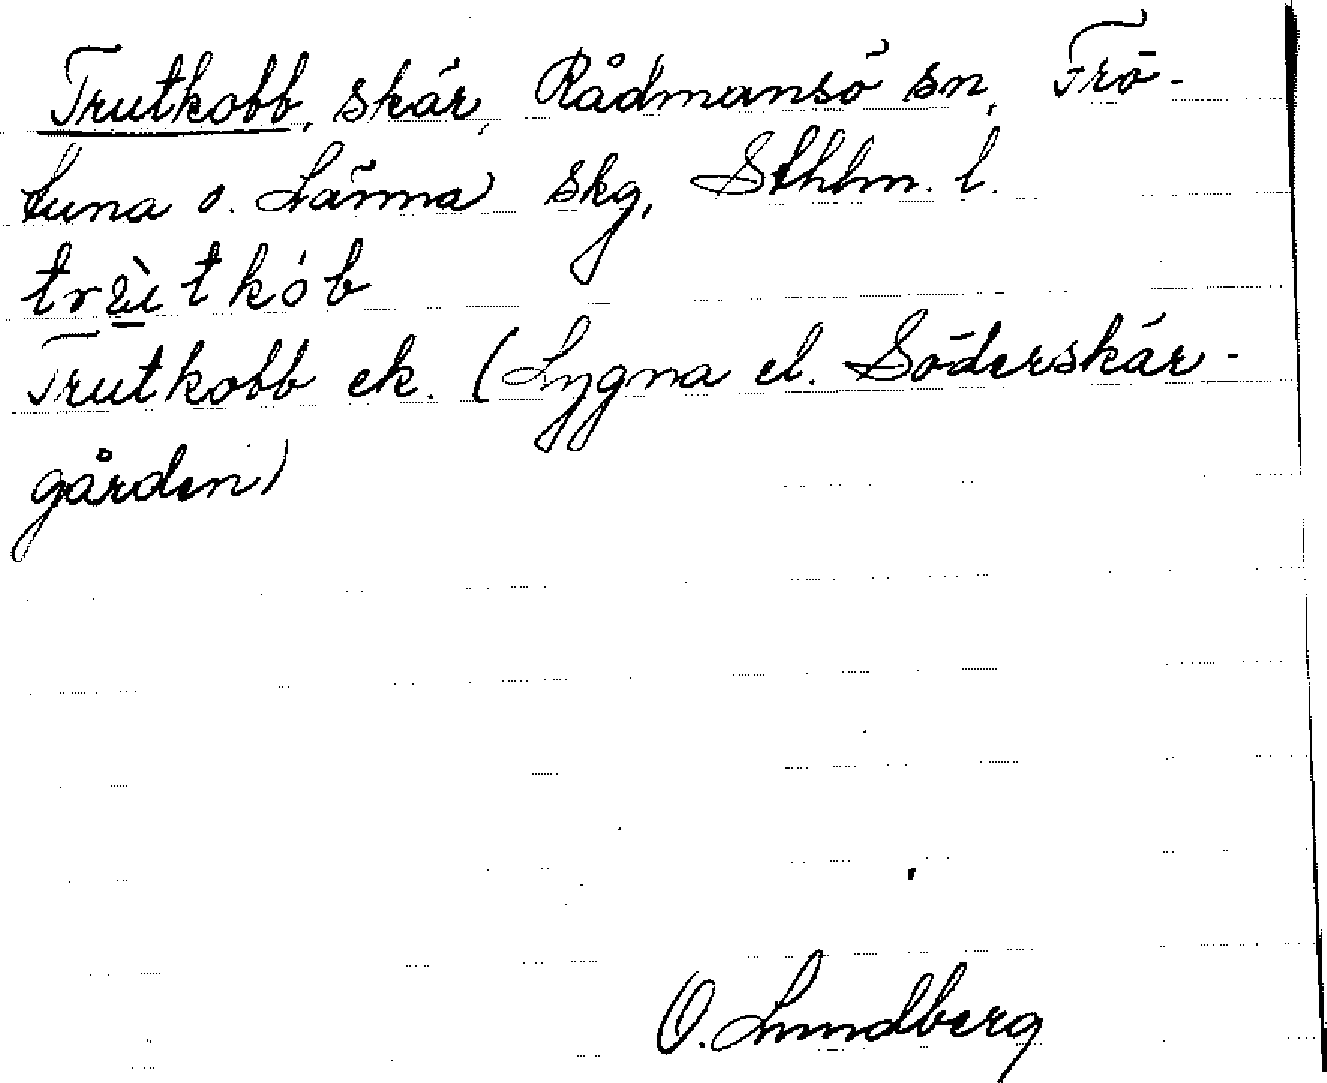 Trutkobb, skär, Rådmansö sn, Frö-
tuna o. Länna skg, Sthlm. l.
Trutkobb ek. (Lygna el. Söderskär-
gården)
O. Lundberg